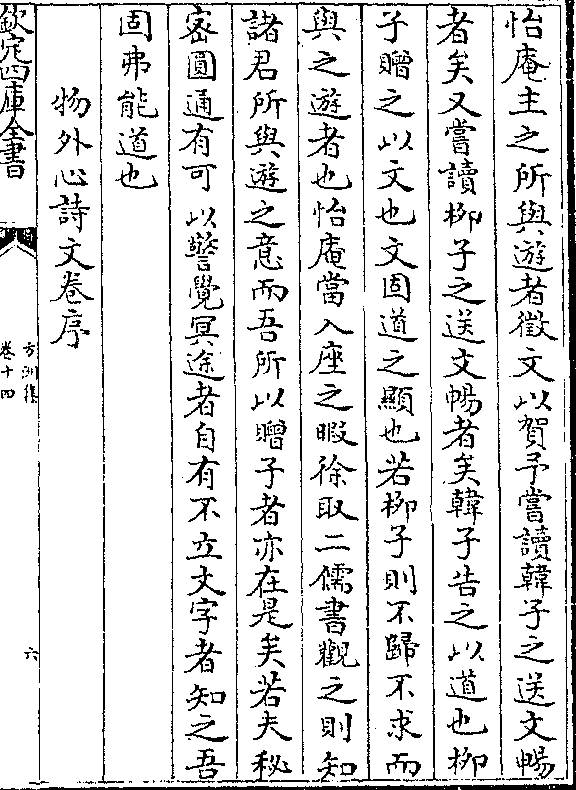 怡庵主之所與遊者徵文以賀予嘗讀韓子之送文暢
者矣又嘗讀柳子之送文暢者矣韓子告之以道也柳
子贈之以文也文固道之顯也若柳子則不歸不求而
與之遊者也怡庵當入座之暇徐取二儒書觀之則知
諸君所與遊之意而吾所以贈子者亦在是矣若夫秘
宻圓通有可以警覺冥途者自有不立文字者知之吾
固弗能道也
物外心詩文卷序
欽定四庫全書
方洲集
卷十四
六